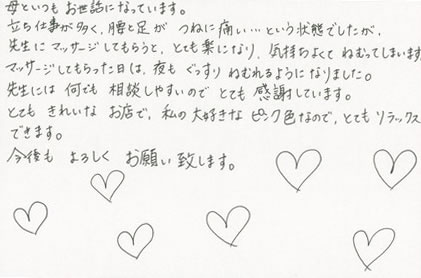 母といつもお世話になっています。
立ち仕事が多く、腰と足が つねに痛い…という状態でしたが、
先生にマッサージしてもらうと、とても楽になり、気持ちよくてねむってしまいます
マッサージしてもらった日は、夜も ぐっすり ねむれるようになりました。
先生には 何でも 相談しやすいので とても 感謝しています。
とても きれいな お店で、私の大好きな ピンク色なので、とても リラックス
できます。
今後も よろしく お願い致します。